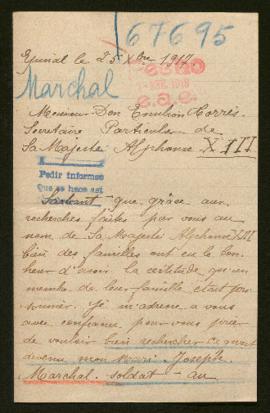 67695
Epinal le 25 Xbre 1917
Marchal
Monsieur Don Emilion Torrès
Secretaire Particulier de
Sa Majesté Alphonse XIII
Pedir informes
Que se hace así
Sachant que, grâce aux
recherches faites par vous au
nom de Sa Majesté Alphonse XIII
bien des familles ont eu le bon
heur d'avoir la certitude qu'un
membre de leur famille était pri
sonnier, je m'adresse a vous
avec confiance pour vous prier
de vouloir bien rechercher ce qu'est
devenu mon mari Joseph
Marchal soldat au